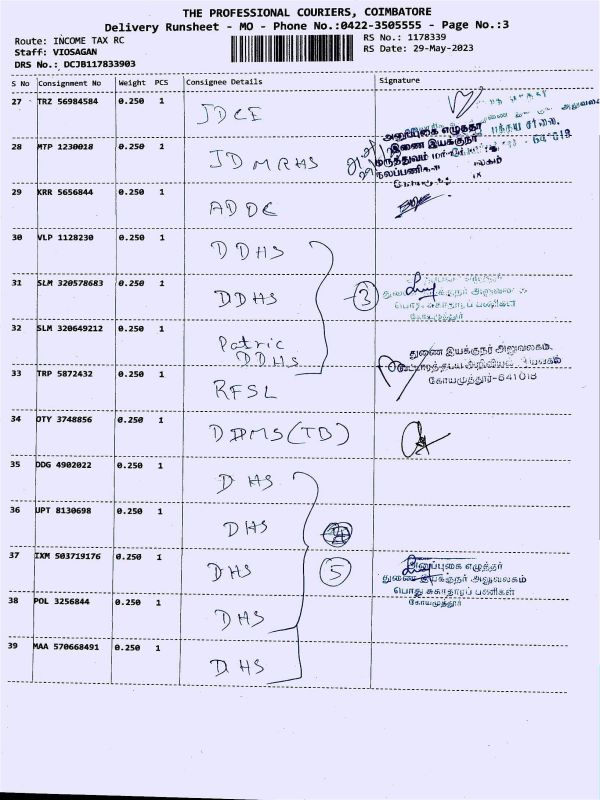 THE PROFESSIONAL COURIERS, COIMBATORE
Delivery Runsheet - MO - Phone No.:0422-3505555 - Page No.:3
Route: INCOME TAX RC
RS No.: 1178339
Staff: VIOSAGAN
RS Date: 29-May-2023
DRS No.: DCJB117833903
S No Consignment No Weight PCS Consignee Details Signature
27 TRZ 56984584 0.250 1 JDCE
28 MTP 1230018 0.250 1 JDMRHS
அனுப்புகை எழுத்தர்
இணை இயக்குநர்
மருத்துவம்
நலப்பணிகள்
29 KRR 5656844 0.250 1 ADDC
30 VLP 1128230 0.250 1 DDHS
31 SLM 320578683 0.250 1 DDHS 3
அலுவலகம்
பொது சுகாதாரப் பணிகள்
கோயமுத்தூர்
32 SLM 320649212 0.250 1 Patric
DDHS
துணை இயக்குநர் அலுவலகம்.
கோயமுத்தூர்-641018
33 TRP 5872432 0.250 1 RFSL
34 OTY 3748856 0.250 1 DDMS(TB)
35 DDG 4902022 0.250 1 DHS
36 UPT 8130698 0.250 1 DHS
37 IXM 503719176 0.250 1 DHS 5
அனுப்புகை எழுத்தர்
துணை இயக்குநர் அலுவலகம்
பொது சுகாதாரப் பணிகள்
கோயமுத்தூர்
38 POL 3256844 0.250 1 DHS
39 MAA 570668491 0.250 1 DHS